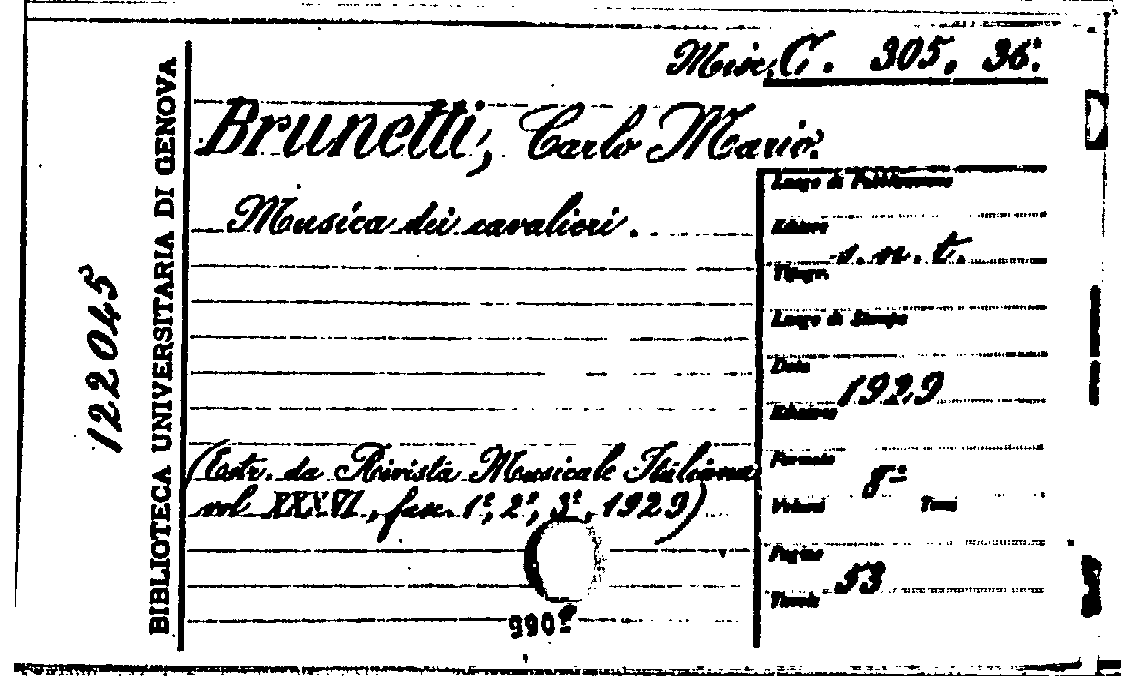 Misc. C. 305. 36.
Brunetti, Carlo Mario.
Musica dei cavalieri.
(Estr. da Rivista Musicale Italiana
vol. XXXVI, fasc. 1º, 2º, 3º, 1929)
Luogo di Pubblicazione
Editore
s. n. t.
Tipogr.
Luogo di Stampa
Data
1929
Edizione
Formato
8º
Volumi Tomi
Pagine
53
Tavole
BIBLIOTECA UNIVERSITARIA DI GENOVA
122045